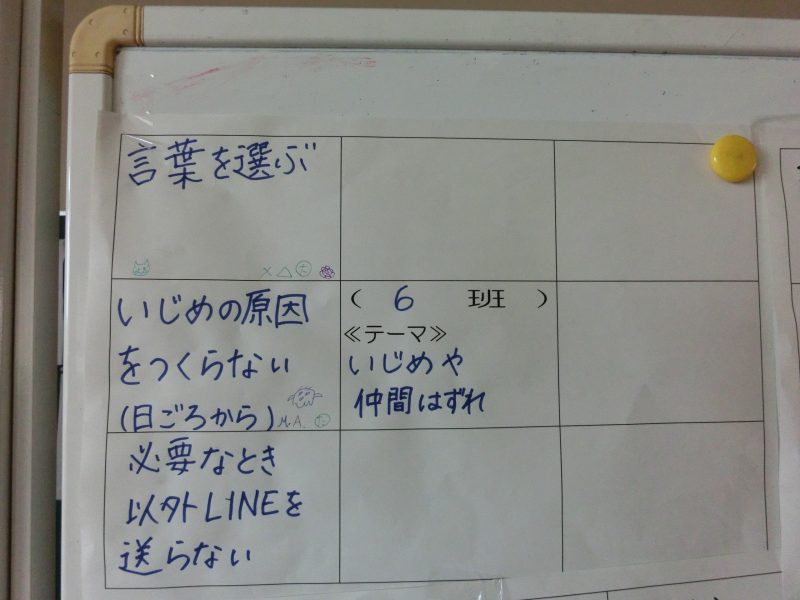 言葉を選ぶ
いじめの原因
をつくらない
(日ごろから)
M.A.
( 6 班 )
≪テーマ≫
いじめや
仲間はずれ
必要なとき
以外LINEを
送らない